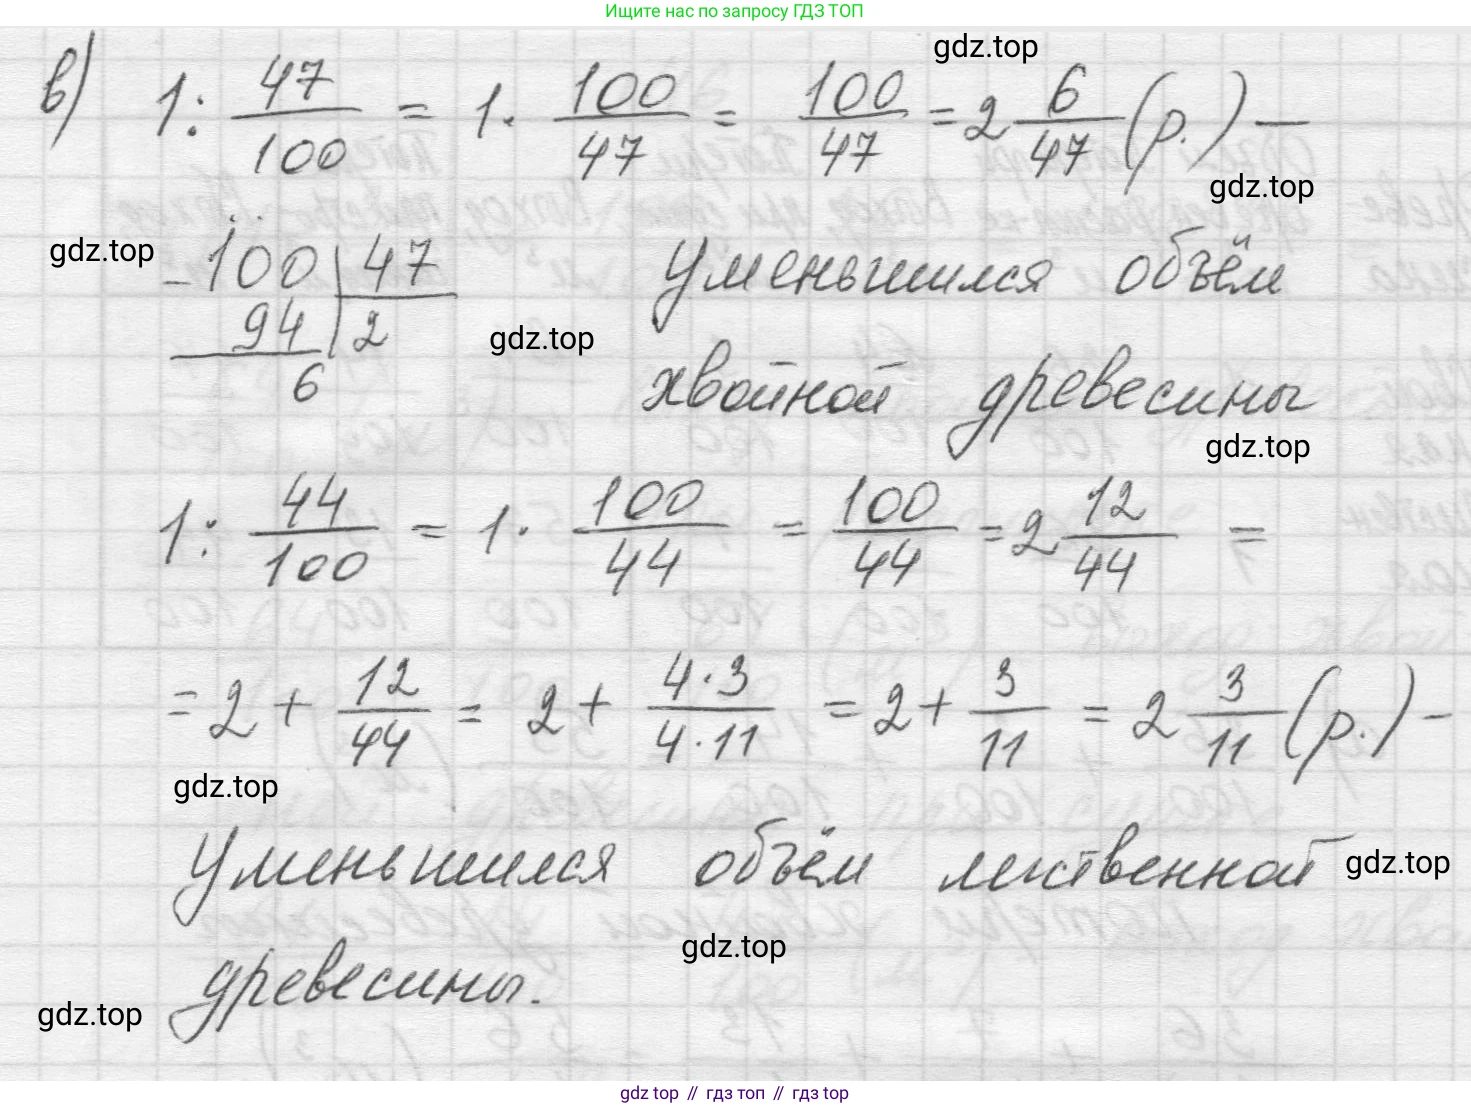 Ищите нас по запросу ГДЗ ТОП
gdz.top
в) 1 : 47/100 = 1 · 100/47 = 100/47 = 2 6/47 (р.) —
gdz.top
gdz.top
-100 | 47
94 | 2
6
уменьшился объём
gdz.top
хвойной древесины
gdz.top
1 : 44/100 = 1 · 100/44 = 100/44 = 2 12/44 =
= 2 + 12/44 = 2 + 4·3/4·11 = 2 + 3/11 = 2 3/11 (р.) -
gdz.top
уменьшился объём лиственной
gdz.top
gdz.top
древесины.
gdz.top
gdz.top // гдз топ // гдз top